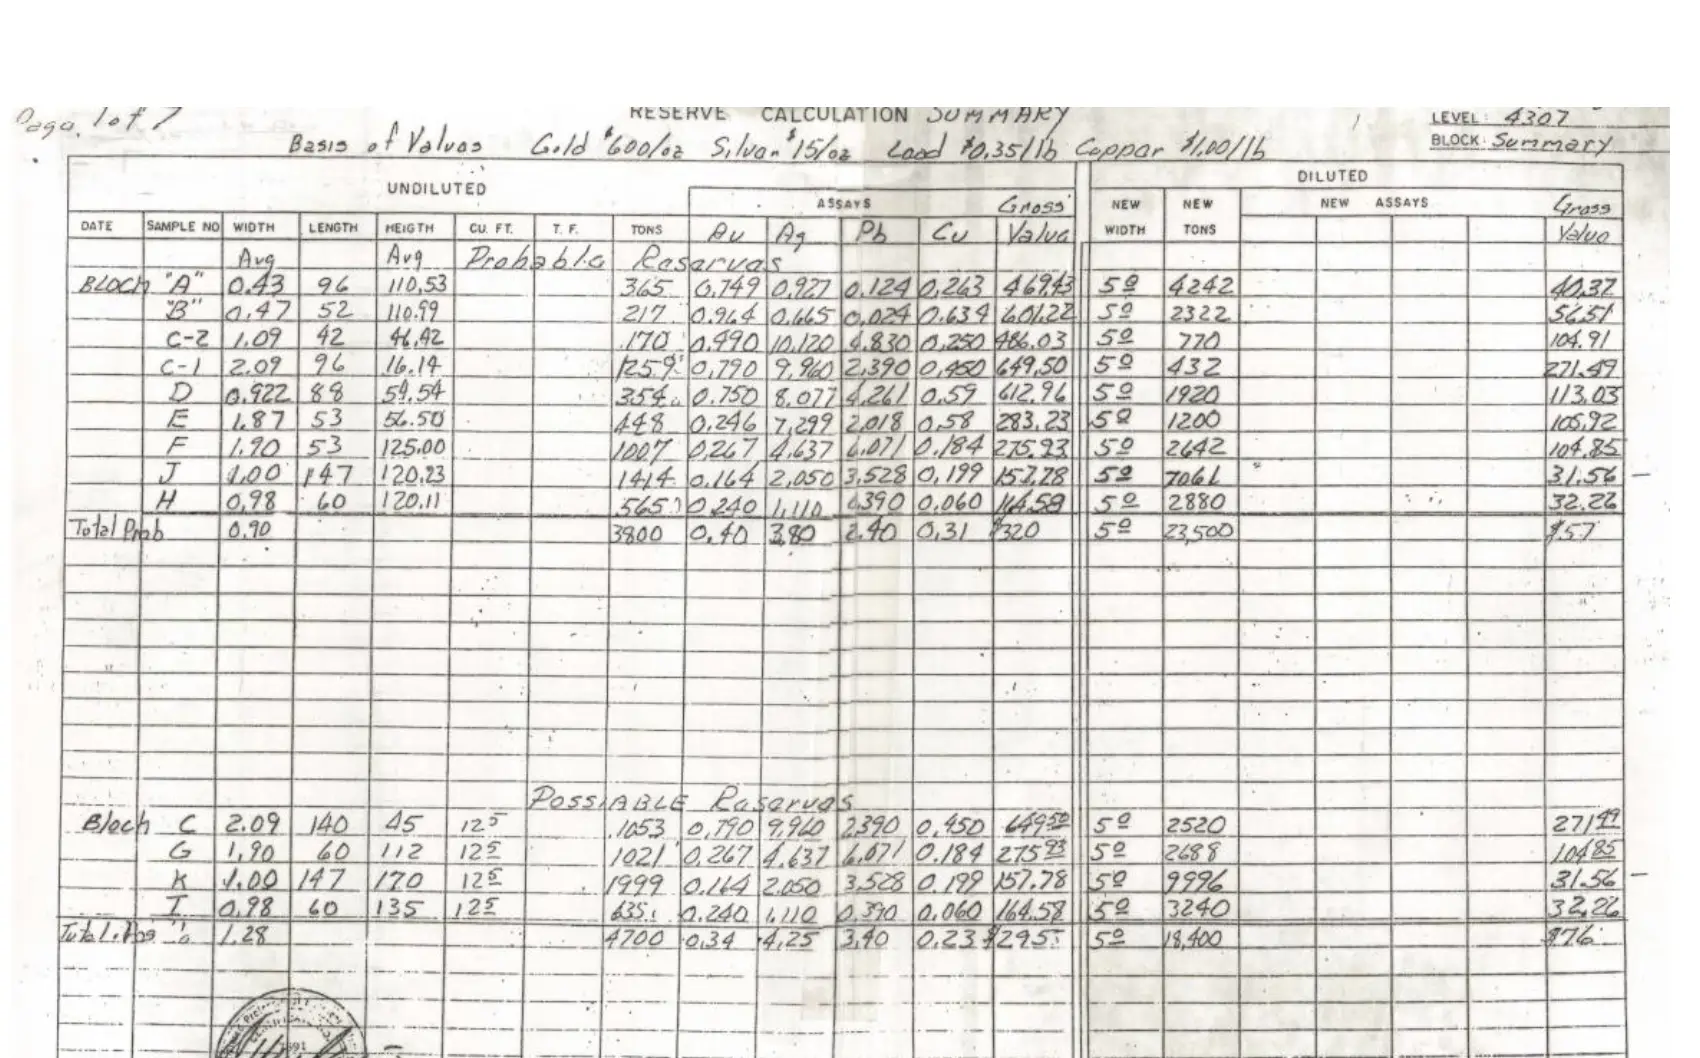 Page 1 of 7
RESERVE CALCULATION SUMMARY
LEVEL: 4307
Basis of Values Gold $600/oz Silver $15/oz Lead $0.35/lb Copper $1.00/lb
BLOCK: Summary
UNDILUTED DILUTED
ASSAYS Gross NEW NEW NEW ASSAYS Gross
DATE SAMPLE NO WIDTH LENGTH HEIGTH CU. FT. T. F. TONS Au Ag Pb Cu Value WIDTH TONS Value
Avg Avg Probable Reserves
Block "A" 0.43 96 110.53 365 0.749 0.927 0.124 0.263 469.43 5º 4242 40.37
"B" 0.47 52 110.99 217 0.964 0.665 0.024 0.634 601.22 5º 2322 56.51
C-2 1.09 42 46.42 170 0.490 10.120 4.830 0.250 486.03 5º 770 104.91
C-1 2.09 96 16.14 259 0.790 9.960 2.390 0.450 649.50 5º 432 271.49
D 0.922 88 59.54 354 0.750 8.077 4.261 0.59 612.96 5º 1920 113.03
E 1.87 53 56.50 448 0.246 7.299 2.018 0.58 283.23 5º 1200 105.92
F 1.90 53 125.00 1007 0.267 4.637 6.071 0.184 275.93 5º 2642 104.85
J 1.00 147 120.23 1414 0.164 2.050 3.528 0.199 157.78 5º 7061 31.56
H 0.98 60 120.11 565 0.240 1.110 0.060 164.58 5º 2880 32.26
Total Prob 0.90 3800 0.40 3.80 2.40 0.31 $320 5º 23,500 $57
POSSIABLE Reserves
Block C 2.09 140 45 12⁵ 1053 0.790 9.960 2.390 0.450 649.50 5º 2520 271.49
G 1.90 60 112 12⁵ 1021 0.267 4.637 6.071 0.184 275.93 5º 2688 104.85
K 1.00 147 170 12⁵ 1999 0.164 2.050 3.528 0.199 157.78 5º 9996 31.56
I 0.98 60 135 12⁵ 635 0.240 1.110 0.390 0.060 164.58 5º 3240 32.26
Total Pos 1.28 4700 0.34 4.25 3.40 0.23 $295 5º 18,400 $76